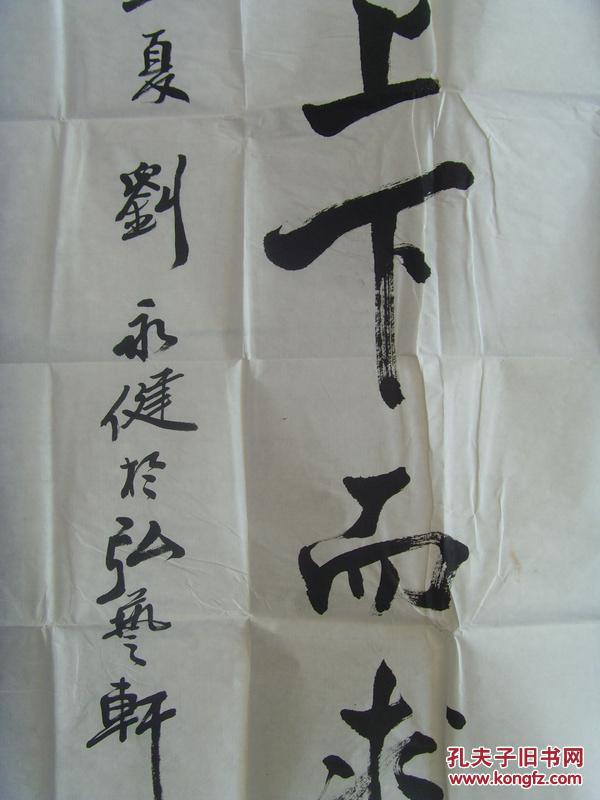 上下而求
夏劉永健於弘藝軒
孔夫子旧书网
www.kongfz.com